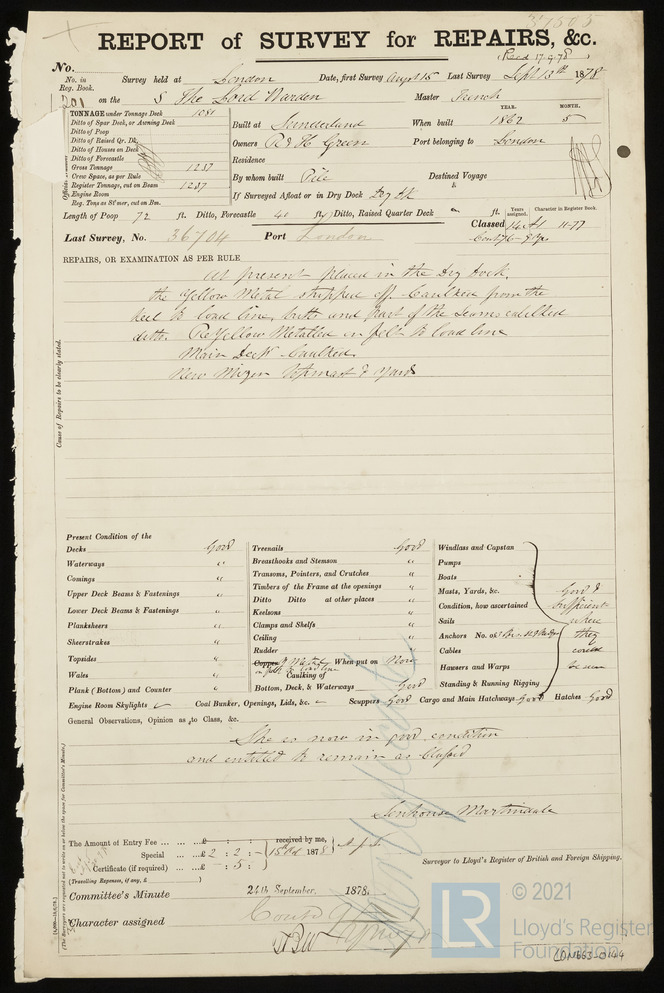 REPORT of SURVEY for REPAIRS, &c.
(Recd 17.9.78)
No.
No. in Reg. Book.
Survey held at London Date, first Survey Augst 15 Last Survey Septr 13th 1878
201 on the S The Lord Warden Master French
TONNAGE under Tonnage Deck
Ditto of Spar Deck, or Awning Deck
Ditto of Poop
Ditto of Raised Qr. Dk.
Ditto of Houses on Deck
Ditto of Forecastle
Gross Tonnage 1237
Crew Space, as per Rule
Register Tonnage, cut on Beam 1237
Engine Room
Reg. Tons as St'mer, cut on Bm.
Official
Built at Sunderland
YEAR. MONTH.
When built 1862 5
Owners R & H Green Port belonging to London
Residence
By whom built Pile Destined Voyage
If Surveyed Afloat or in Dry Dock Dry Dk
Length of Poop 72 ft. Ditto, Forecastle 41 ft. Ditto, Raised Quarter Deck ft.
Years assigned. Character in Register Book.
Classed 14 A1 11-77
Last Survey, No. 36704 Port London
REPAIRS, OR EXAMINATION AS PER RULE
Cause of Repairs to be clearly stated.
At present placed in the Dry Dock,
the Yellow Metal stripped off. Caulked from the
keel to load line, butts and part of the Seams
ditto. ReYellow Metalled on felt to load line
Main Deck Caulked.
New Mizen topmast & Yards
Present Condition of the
Decks Good
Waterways "
Comings "
Upper Deck Beams & Fastenings "
Lower Deck Beams & Fastenings "
Planksheers "
Sheerstrakes "
Topsides "
Wales "
Plank (Bottom) and Counter "
Engine Room Skylights
Treenails Good
Breasthooks and Stemson "
Transoms, Pointers, and Crutches "
Timbers of the Frame at the openings "
Ditto Ditto at other places "
Keelsons "
Clamps and Shelfs "
Ceiling "
Rudder "
Copper Y Metal When put on Now
on felt to load line
Caulking of
Bottom, Deck, & Waterways Good
Coal Bunker, Openings, Lids, &c. Scuppers Good Cargo and Main Hatchways Good Hatches Good
Windlass and Capstan
Pumps
Boats
Masts, Yards, &c.
Condition, how ascertained
Sails
Anchors No. of
Cables
Hawsers and Warps
Standing & Running Rigging
Good &
sufficient
where
they
could
be seen
General Observations, Opinion as to Class, &c.
She is now in good condition
and entitled to remain as Classed
Senhouse Martindale
Surveyor to Lloyd's Register of British and Foreign Shipping.
The Amount of Entry Fee £ : : received by me,
Special £2 : 2 : -
Certificate (if required) - : 5 : -
(Travelling Expenses, if any, £
187
Committee's Minute 24th September, 1878.
Character assigned
(The Surveyors are requested not to write on or below the space for Committee's Minute.)
© 2021
LR
Lloyd's Register
Foundation
LDN663-0144